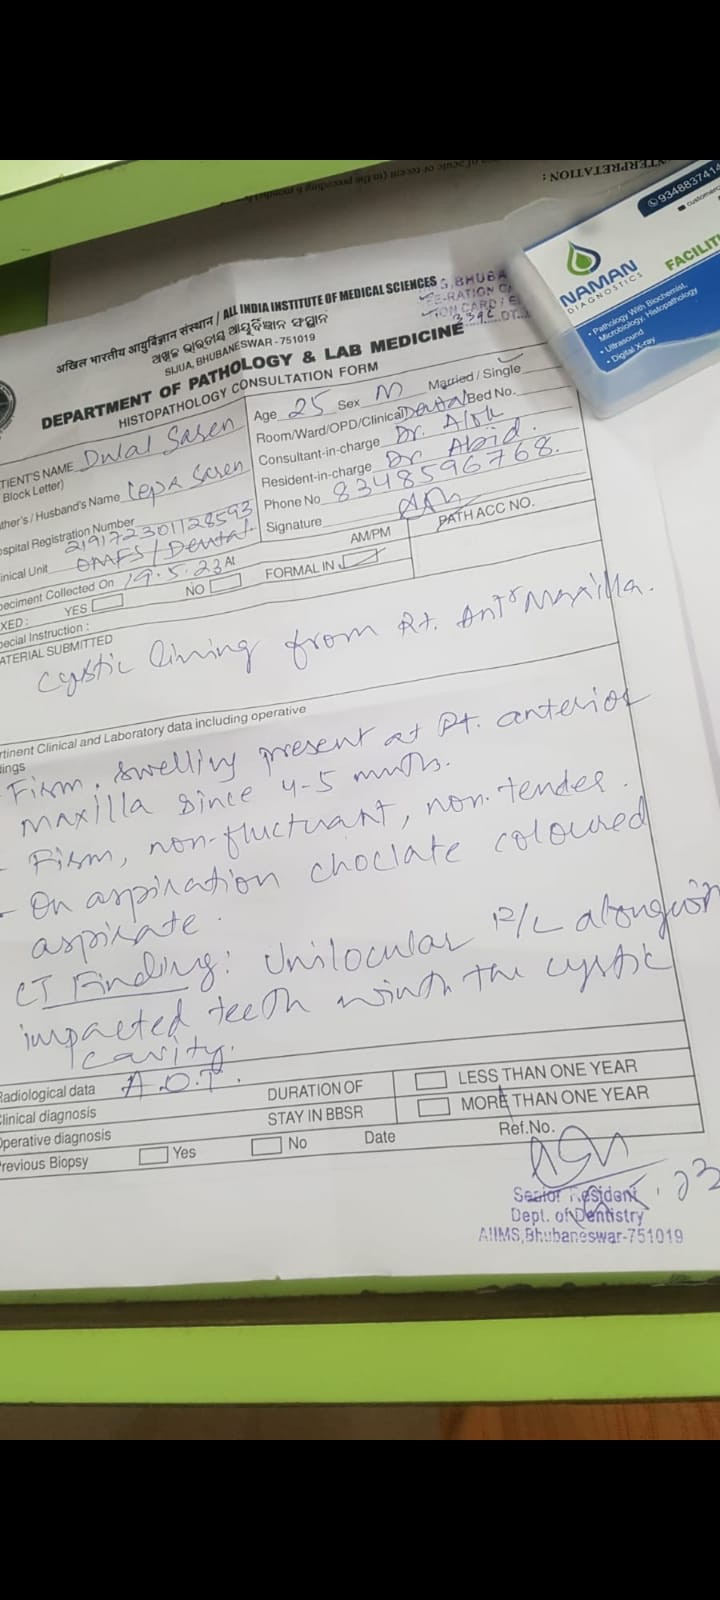 INTERPRETATION :
of acute or recent (in the preceding 6 months
9348837414
NAMAN
DIAGNOSTICS
FACILIT
• Pathology With Biochemist,
Microbiology, Histopathology
• Ultrasound
• Digital X-ray
अखिल भारतीय आयुर्विज्ञान संस्थान / ALL INDIA INSTITUTE OF MEDICAL SCIENCES
ଅଖିଳ ଭାରତୀୟ ଆୟୁର୍ବିଜ୍ଞାନ ସଂସ୍ଥାନ
SIJUA, BHUBANESWAR - 751019
DEPARTMENT OF PATHOLOGY & LAB MEDICINE
HISTOPATHOLOGY CONSULTATION FORM
TIENT'S NAME Dulal Saren
Block Letter)
ther's / Husband's Name Lepa Saren
spital Registration Number
219172301128593
inical Unit OMFS / Dental
Age 25 Sex M Married / Single
Room/Ward/OPD/Clinical Dental Bed No.
Consultant-in-charge Dr. Alok
Resident-in-charge Dr Abid.
Phone No 8348596768.
Signature
PATH ACC NO.
eciment Collected On 19.5.23 At AM/PM
XED : YES NO FORMAL IN
ecial Instruction :
ATERIAL SUBMITTED
Cystic lining from Rt. Antr Maxilla.
rtinent Clinical and Laboratory data including operative
ings
Firm, swelling present at Rt. anterior
maxilla since 4-5 mnths.
- Firm, non-fluctuant, non-tender.
- On aspiration choclate coloured
aspirate.
CT Finding: Unilocular R/L alongwith
impacted teeth winth the cystic
cavity.
Radiological data A.O.T.
linical diagnosis
perative diagnosis
revious Biopsy Yes No Date
DURATION OF
STAY IN BBSR
LESS THAN ONE YEAR
MORE THAN ONE YEAR
Ref.No.
Senior Resident
Dept. of Dentistry
AIIMS, Bhubaneswar-751019